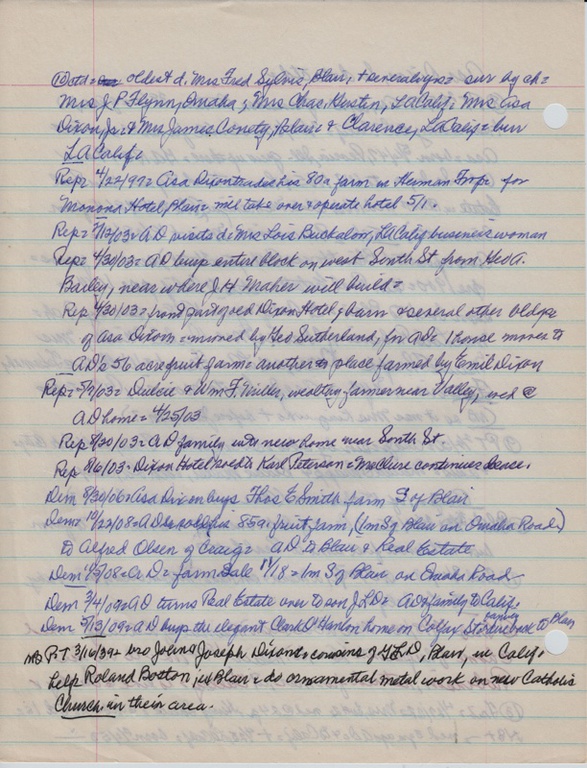 oldest d. Mrs Fred Sylvis, Blair, + several gns = sur by ch =
Mrs J P Flynn, Omaha; Mrs Chas. Huston, LaCalif = Mrs Asa
Dixon, Jr. & Mrs James Conety, Blair & Clarence, LaCalif = bur
LA Calif =
Rep = 4/22/99 = Asa Dixon trades his 80a farm in Herman Twp. for
Monona Hotel, Blair = will take over & operate hotel 5/1.
Rep = 3/13/03 = AD visits d. Mrs Lois Buckalon, LA Calif business woman
Rep = 4/30/03 = AD buys entire block on west South St from Geo A.
Bailey, near where J H Maher will build =
Rep 4/30/03 = front part of old Dixon Hotel, barn & several other bldgs
of Asa Dixon = moved by Geo Sutherland, for AD = 1 house moves to
AD's 56 acre fruit farm = another to place farmed by Emil Dixon
Rep = 5/7/03 = Dulcie & Wm F. Widler, wealthy farmer near Valley, wed @
AD home = 4/25/03
Rep 7/30/03 = AD family into new home near South St.
Rep 8/6/03 = Dixon Hotel sold to Karl Peterson = McClure continues lease.
Dem 8/30/06 = Asa Dixon buys Thos E Smith farm S of Blair
Dem = 10/22/08 = AD sold his 85a fruit farm, (1m S of Blair on Omaha Road)
to Alfred Olsen of Craig = AD to Blair & Real Estate
Dem /08 = A D = farm Sale 11/18 = 1m S of Blair on Omaha Road
Dem 3/4/09 = AD turns Real Estate over to son J L D = AD & family to Calif.
Dem 5/13/09 = AD buys the elegant Clark O'Hanlon home on Colfax St = family back to Blair
P-T 3/16/39 = bro John & Joseph Dixon = cousins of , Blair, in Calif.
help Roland Boston, in Blair & do ornamental metal work on new Catholic
Church in their area.